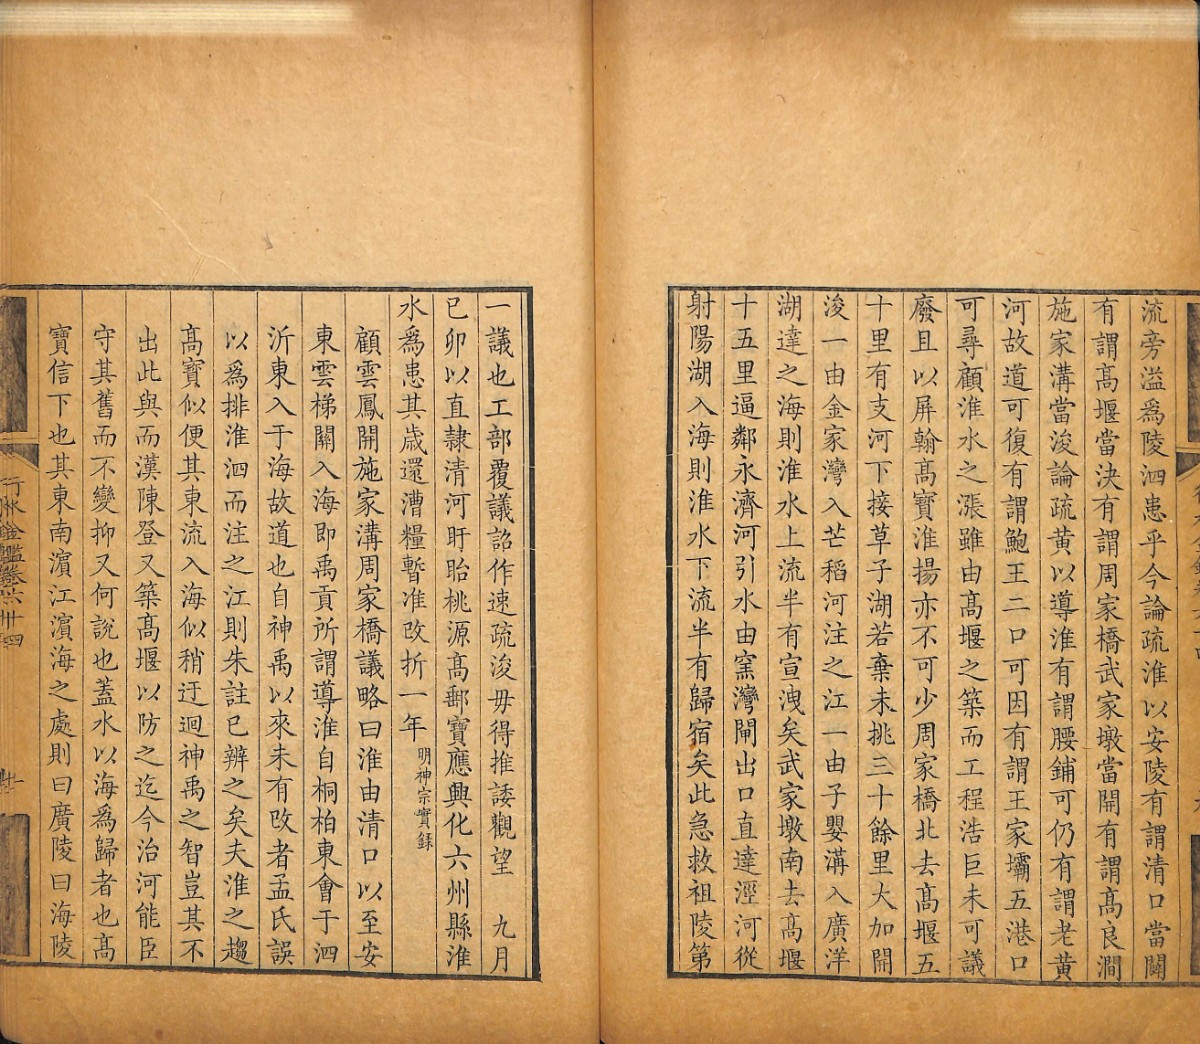 流旁溢爲陵泗患乎今論疏淮以安陵有謂清口當闢
有謂高堰當決有謂周家橋武家墩當開有謂高良澗
施家溝當浚論疏黃以導淮有謂腰鋪可仍有謂老黃
河故道可復有謂鮑王二口可因有謂王家壩五港口
可尋顧淮水之漲雖由高堰之築而工程浩巨未可議
廢且以屏翰高寶淮揚亦不可少周家橋北去高堰五
十里有支河下接草子湖若棄未挑三十餘里大加開
浚一由金家灣入芒稻河注之江一由子嬰溝入廣洋
湖達之海則淮水上流半有宣洩矣武家墩南去高堰
十五里逼鄰永濟河引水由窯灣閘出口直達涇河從
射陽湖入海則淮水下流半有歸宿矣此急救祖陵第
一議也工部覆議詔作速疏浚毋得推諉觀望　九月
已卯以直隷清河盱眙桃源高郵寶應興化六州縣淮
水爲患其歲還漕糧暫准改折一年 明神宗實録
顧雲鳳開施家溝周家橋議略曰淮由清口以至安
東雲梯關入海即禹貢所謂導淮自桐柏東會于泗
沂東入于海故道也自神禹以來未有改者孟氏誤
以爲排淮泗而注之江則朱註已辨之矣夫淮之趨
高寶似便其東流入海似稍迂迴神禹之智豈其不
出此與而漢陳登又築高堰以防之迄今治河能臣
守其舊而不變抑又何說也蓋水以海爲歸者也高
寶信下也其東南濵江濵海之處則曰廣陵曰海陵
行水金鑑卷六十四